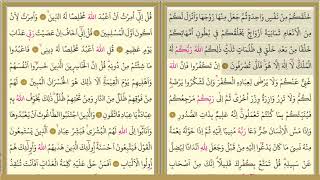 خَلَقَكُمْ مِنْ نَفْسٍ وَاحِدَةٍ ثُمَّ جَعَلَ مِنْهَا زَوْجَهَا وَأَنْزَلَ لَكُمْ
مِنَ الْأَنْعَامِ ثَمَانِيَةَ أَزْوَاجٍ يَخْلُقُكُمْ فِي بُطُونِ أُمَّهَاتِكُمْ
خَلْقًا مِنْ بَعْدِ خَلْقٍ فِي ظُلُمَاتٍ ثَلَاثٍ ذَلِكُمُ اللَّهُ رَبُّكُمْ لَهُ
الْمُلْكُ لَا إِلَهَ إِلَّا هُوَ فَأَنَّى تُصْرَفُونَ إِنْ تَكْفُرُوا فَإِنَّ اللَّهَ
غَنِيٌّ عَنْكُمْ وَلَا يَرْضَى لِعِبَادِهِ الْكُفْرَ وَإِنْ تَشْكُرُوا يَرْضَهُ
لَكُمْ وَلَا تَزِرُ وَازِرَةٌ وِزْرَ أُخْرَى ثُمَّ إِلَى رَبِّكُمْ مَرْجِعُكُمْ
فَيُنَبِّئُكُمْ بِمَا كُنْتُمْ تَعْمَلُونَ إِنَّهُ عَلِيمٌ بِذَاتِ الصُّدُورِ
وَإِذَا مَسَّ الْإِنْسَانَ ضُرٌّ دَعَا رَبَّهُ مُنِيبًا إِلَيْهِ ثُمَّ إِذَا خَوَّلَهُ
نِعْمَةً مِنْهُ نَسِيَ مَا كَانَ يَدْعُو إِلَيْهِ مِنْ قَبْلُ وَجَعَلَ لِلَّهِ أَنْدَادًا لِيُضِلَّ
عَنْ سَبِيلِهِ قُلْ تَمَتَّعْ بِكُفْرِكَ قَلِيلًا إِنَّكَ مِنْ أَصْحَابِ
قُلْ إِنِّي أُمِرْتُ أَنْ أَعْبُدَ اللَّهَ مُخْلِصًا لَهُ الدِّينَ وَأُمِرْتُ لِأَنْ
أَكُونَ أَوَّلَ الْمُسْلِمِينَ قُلْ إِنِّي أَخَافُ إِنْ عَصَيْتُ رَبِّي عَذَابَ
يَوْمٍ عَظِيمٍ قُلِ اللَّهَ أَعْبُدُ مُخْلِصًا لَهُ دِينِي فَاعْبُدُوا
مَا شِئْتُمْ مِنْ دُونِهِ قُلْ إِنَّ الْخَاسِرِينَ الَّذِينَ خَسِرُوا أَنْفُسَهُمْ
وَأَهْلِيهِمْ يَوْمَ الْقِيَامَةِ أَلَا ذَلِكَ هُوَ الْخُسْرَانُ الْمُبِينُ لَهُمْ
مِنْ فَوْقِهِمْ ظُلَلٌ مِنَ النَّارِ وَمِنْ تَحْتِهِمْ ظُلَلٌ ذَلِكَ يُخَوِّفُ اللَّهُ
بِهِ عِبَادَهُ يَا عِبَادِ فَاتَّقُونِ وَالَّذِينَ اجْتَنَبُوا الطَّاغُوتَ أَنْ يَعْبُدُوهَا
وَأَنَابُوا إِلَى اللَّهِ لَهُمُ الْبُشْرَى فَبَشِّرْ عِبَادِ الَّذِينَ يَسْتَمِعُونَ
الْقَوْلَ فَيَتَّبِعُونَ أَحْسَنَهُ أُولَئِكَ الَّذِينَ هَدَاهُمُ اللَّهُ وَأُولَئِكَ هُمْ
أُولُوا الْأَلْبَابِ أَفَمَنْ حَقَّ عَلَيْهِ كَلِمَةُ الْعَذَابِ أَفَأَنْتَ تُنْقِذُ